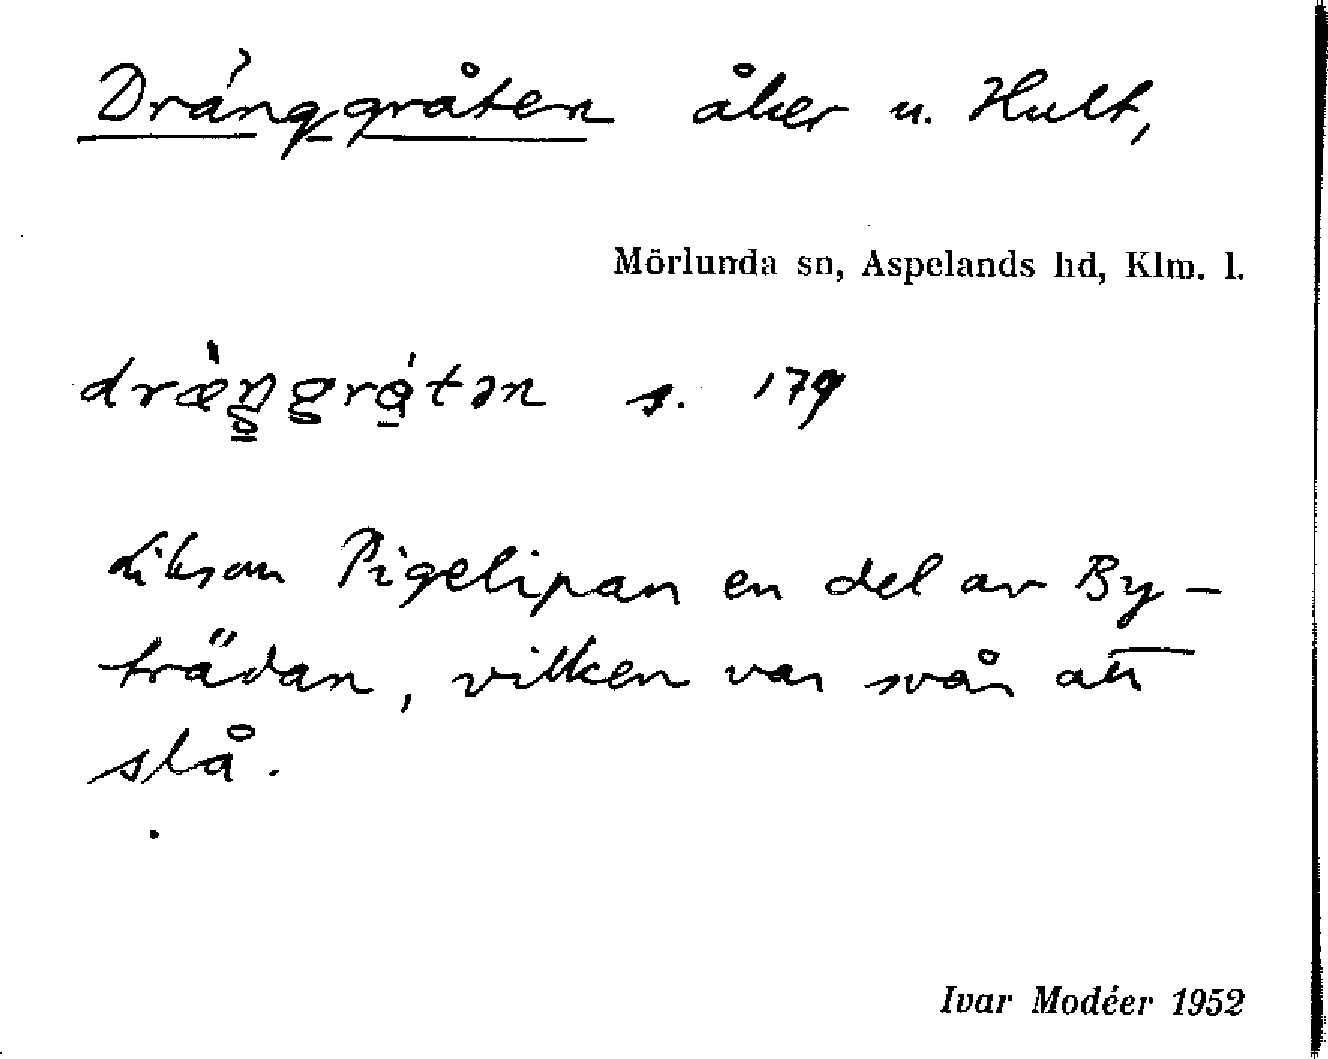 Dränggråten åker u. Hult,
Mörlunda sn, Aspelands hd, Klm. l.
dræ̀ŋgrátən s. 179
Liksom Pigelipan en del av By-
trädan, vilken var svår att
slå.
Ivar Modéer 1952